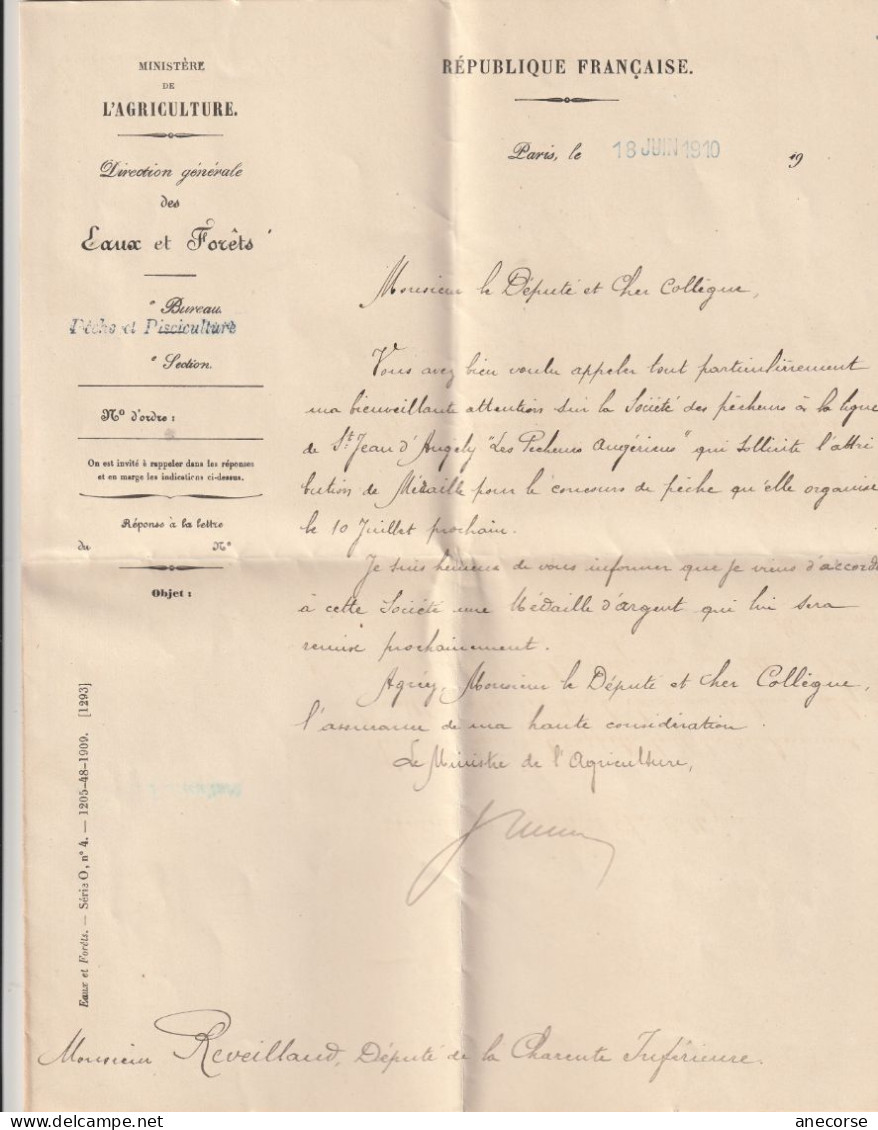 MINISTÈRE
DE
L'AGRICULTURE.
Direction générale
des
Eaux et Forêts
e Bureau.
Pêche et Pisciculture
e Section.
No d'ordre :
On est invité à rappeler dans les réponses
et en marge les indications ci-dessus.
Réponse à la lettre
du No
Objet :
Eaux et Forêts. — Série O, n° 4. — 1205-48-1909. [1293]
RÉPUBLIQUE FRANÇAISE.
Paris, le 18 JUIN 1910 19
Monsieur le Député et Cher Collègue,
Vous avez bien voulu appeler tout particulièrement
ma bienveillante attention sur la Société des pêcheurs à la ligne
de St Jean d'Angely "Les Pecheurs Angériens" qui sollicite l'attri
bution de Médaille pour le concours de pêche qu'elle organise
le 10 Juillet prochain.
Je suis heureux de vous informer que je viens d'accorde
à cette Société une Médaille d'argent qui lui sera
remise prochainement.
Agréez, Monsieur le Député et Cher Collègue,
l'assurance de ma haute considération.
Le Ministre de l'Agriculture,
Monsieur Reveillaud, Député de la Charente Inférieure.
delcampe.net
anecorse